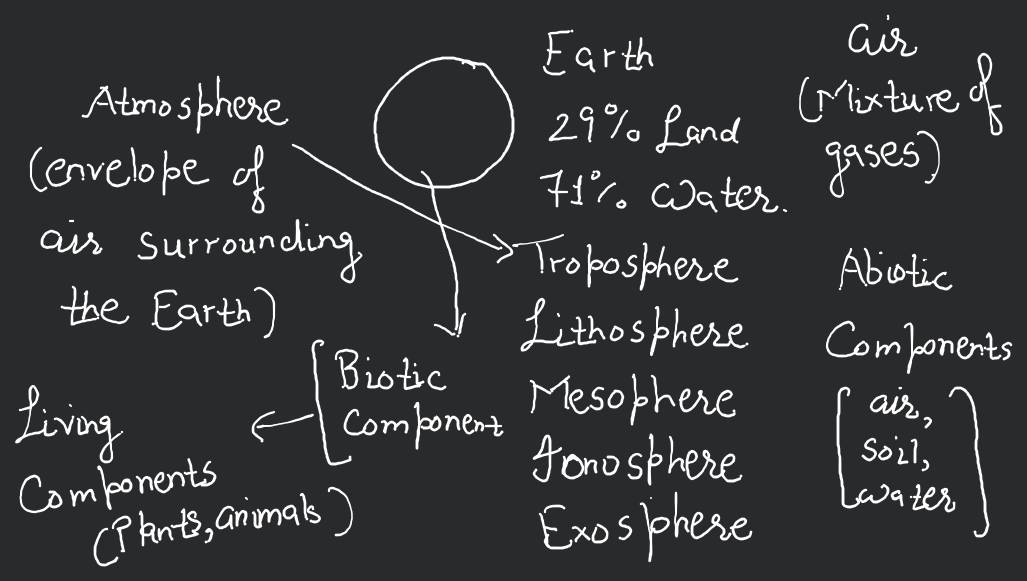 Atmosphere
(envelope of
air surrounding
the Earth)
Earth
29% Land
71% Water.
air
(Mixture of
gases)
Troposphere
Lithosphere
Mesophere
Ionosphere
Exosphere
Abiotic
Components
[air,
soil,
water]
[Biotic
Component
Living
Components
(Plants, animals)